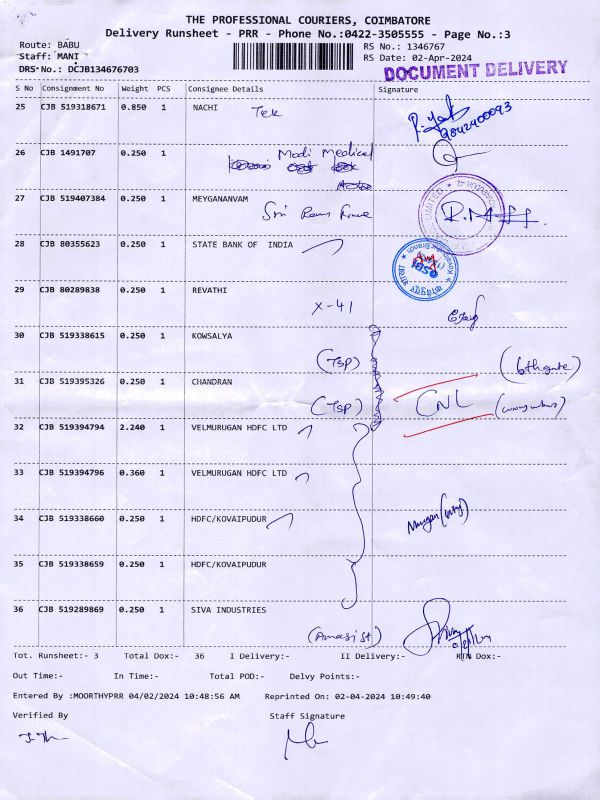 THE PROFESSIONAL COURIERS, COIMBATORE
Delivery Runsheet - PRR - Phone No.:0422-3505555 - Page No.:3
Route: BABU
RS No.: 1346767
Staff: MANI
RS Date: 02-Apr-2024
DRS No.: DCJB134676703
DOCUMENT DELIVERY
S No Consignment No Weight PCS Consignee Details Signature
25 CJB 519318671 0.850 1 NACHI
Tek
9842400093
26 CJB 1491707 0.250 1
Modi Medical
27 CJB 519407384 0.250 1 MEYGANANVAM
Sri Ram
28 CJB 80355623 0.250 1 STATE BANK OF INDIA
29 CJB 80289838 0.250 1 REVATHI
X-41
30 CJB 519338615 0.250 1 KOWSALYA
(Tsp)
31 CJB 519395326 0.250 1 CHANDRAN
(Tsp) CNL
32 CJB 519394794 2.240 1 VELMURUGAN HDFC LTD
33 CJB 519394796 0.360 1 VELMURUGAN HDFC LTD
34 CJB 519338660 0.250 1 HDFC/KOVAIPUDUR
35 CJB 519338659 0.250 1 HDFC/KOVAIPUDUR
36 CJB 519289869 0.250 1 SIVA INDUSTRIES
Tot. Runsheet:- 3 Total Dox:- 36 I Delivery:- II Delivery:- RTN Dox:-
Out Time:- In Time:- Total POD:- Delvy Points:-
Entered By :MOORTHYPRR 04/02/2024 10:48:56 AM Reprinted On: 02-04-2024 10:49:40
Verified By Staff Signature